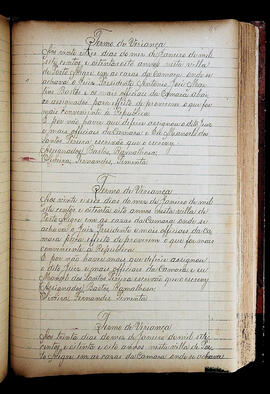 Termo de Veriança
Aos vinte e tres dias do mes de Janeiro de mil
sete centos e oitenta e oito annos nesta villa
de Porto Alegre em as casas da Camara onde se
achava o Juiz Presidente Antonio José
Bastos e os mais officiais da Camara abai-
xo assignados para effeito de proverem o que for
mais conveniente á Republica.
E por não haver que deferir assignou o dito Juiz
e mais officiais da Camara e eu Manoel dos
Santos escrivão que o escrevy
(Assignados) Bastos, Ramalhosa,
Oliveira, Fernandes, Pimenta.
Termo de Veriança
Aos vinte e seis dias do mes de Janeiro de mil
sete centos e oitenta e oito annos nesta villa de
Porto Alegre em as casas da Camara onde se
achava o Juiz Presidente e mais officiais da Ca-
mara para effeito de proverem o que for mais
conveniente á Republica
E por não haver mais que deferir assignou
o dito Juiz e mais officiais da Camara e eu
Manoel dos Santos escrivão que o escrevy
(Assignados) Bastos, Ramalhosa,
Oliveira, Fernandes, Pimenta.
Termo de Veriança
Aos trinta dias do mes de Janeiro de mil sete
centos e oitenta e oito annos nesta villa de Por-
to Alegre em as casas da Camara onde se achava